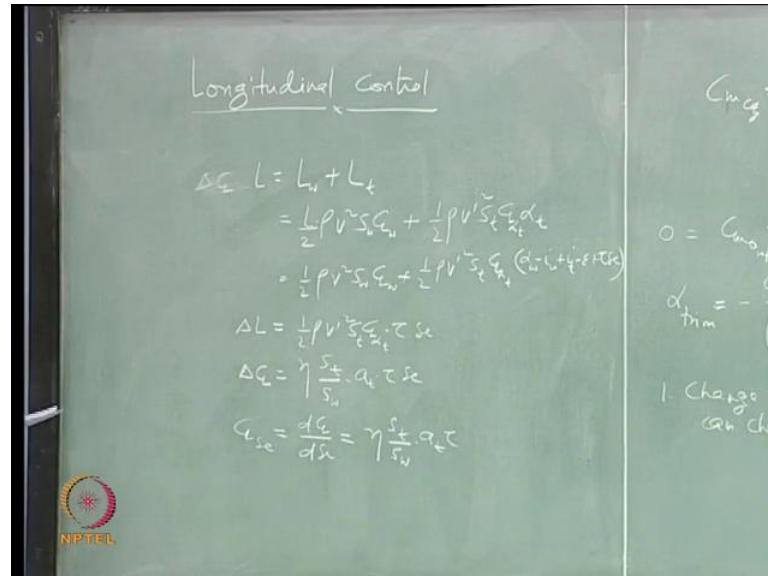 Longitudinal Control
ΔC_L L = L_w + L_t
= 1/2 ρV² S_w C_Lw + 1/2 ρV'² S_t C_Lαt α_t
= 1/2 ρV² S_w C_Lw + 1/2 ρV'² S_t C_Lαt (α_w - i_w + i_t - ε + τδe)
ΔL = 1/2 ρV'² S_t C_Lαt · τ δe
ΔC_L = η S_t/S_w · a_t · τ δe
C_Lδe = dC_L/dδe = η S_t/S_w · a_t τ
C_mcg
0 = C_mo
α_trim = -
1. Change
can ch
NPTEL